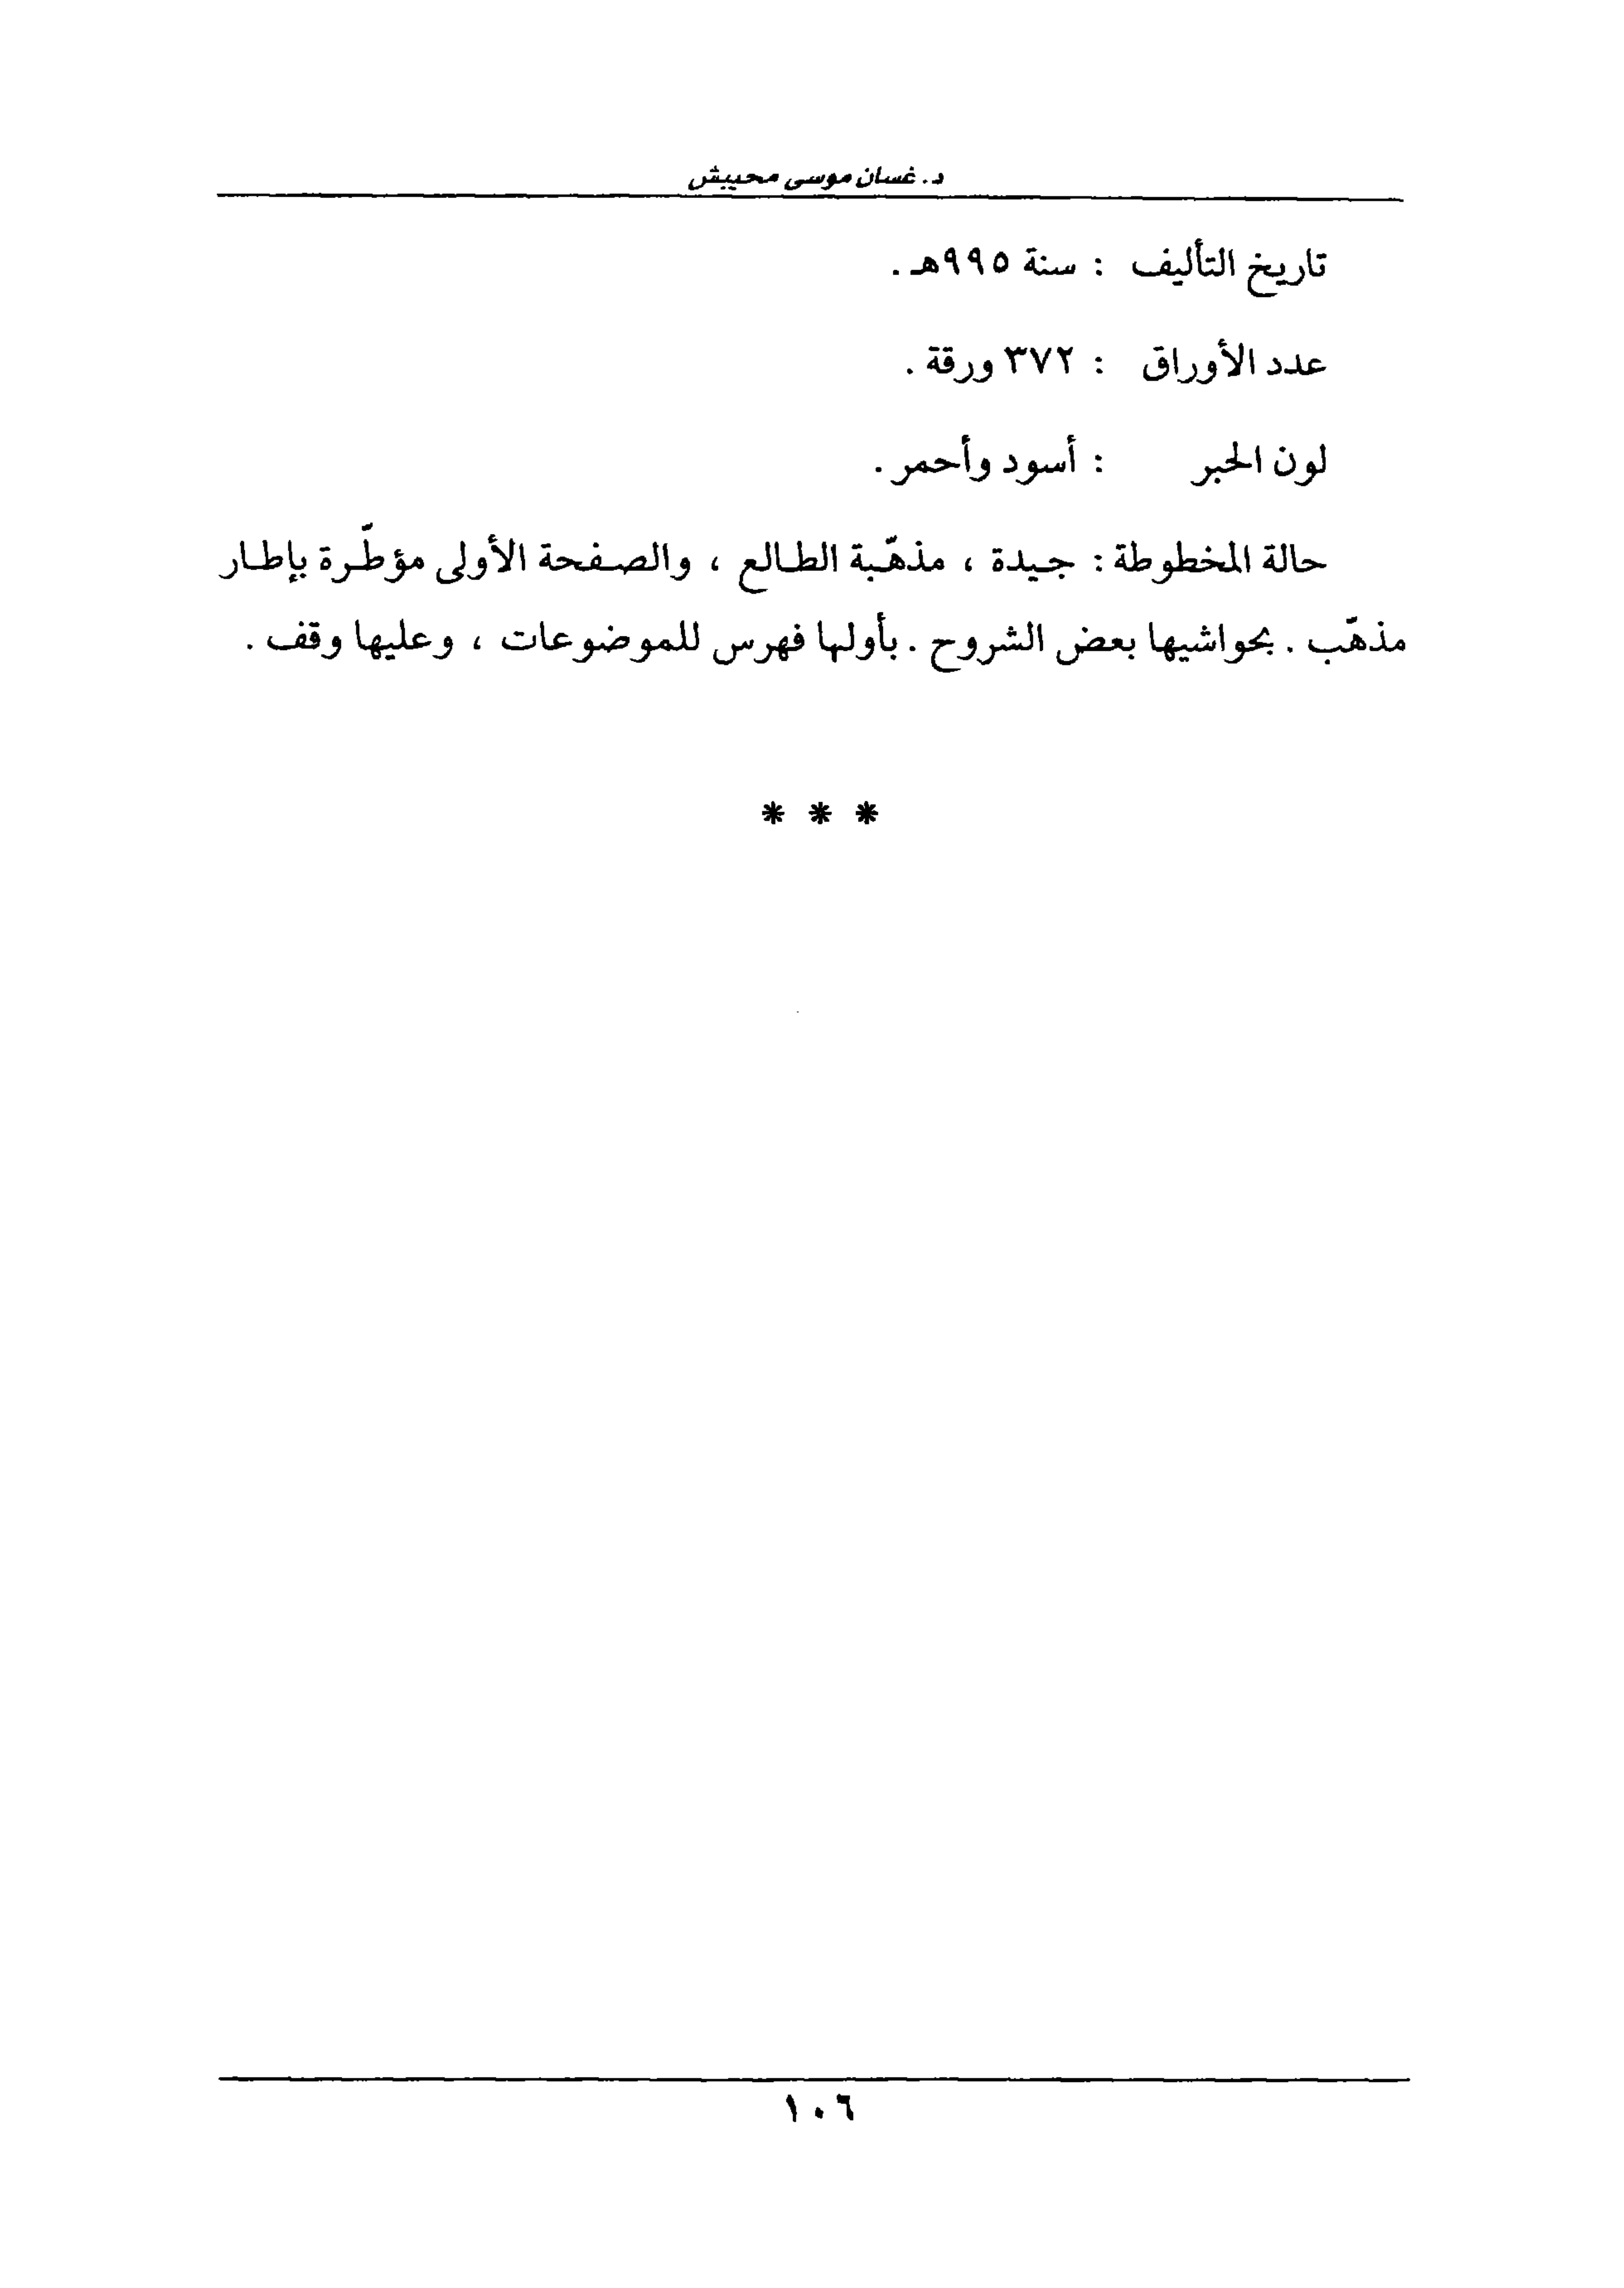 د. غسان موسى محيبش
تاريخ التأليف : سنة ٩٩٥هـ .
عدد الأوراق : ٣٧٢ ورقة .
لون الحبر : أسود وأحمر .
حالة المخطوطة : جيدة ، مذهّبة الطالع ، والصفحة الأولى مؤطّرة بإطار
مذهّب . بحواشيها بعض الشروح . بأولها فهرس للموضوعات ، وعليها وقف .
* * *
١٠٦